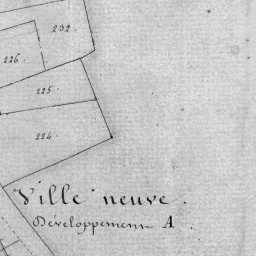 232.
226.
225.
224.
Ville neuve.
Développement A.